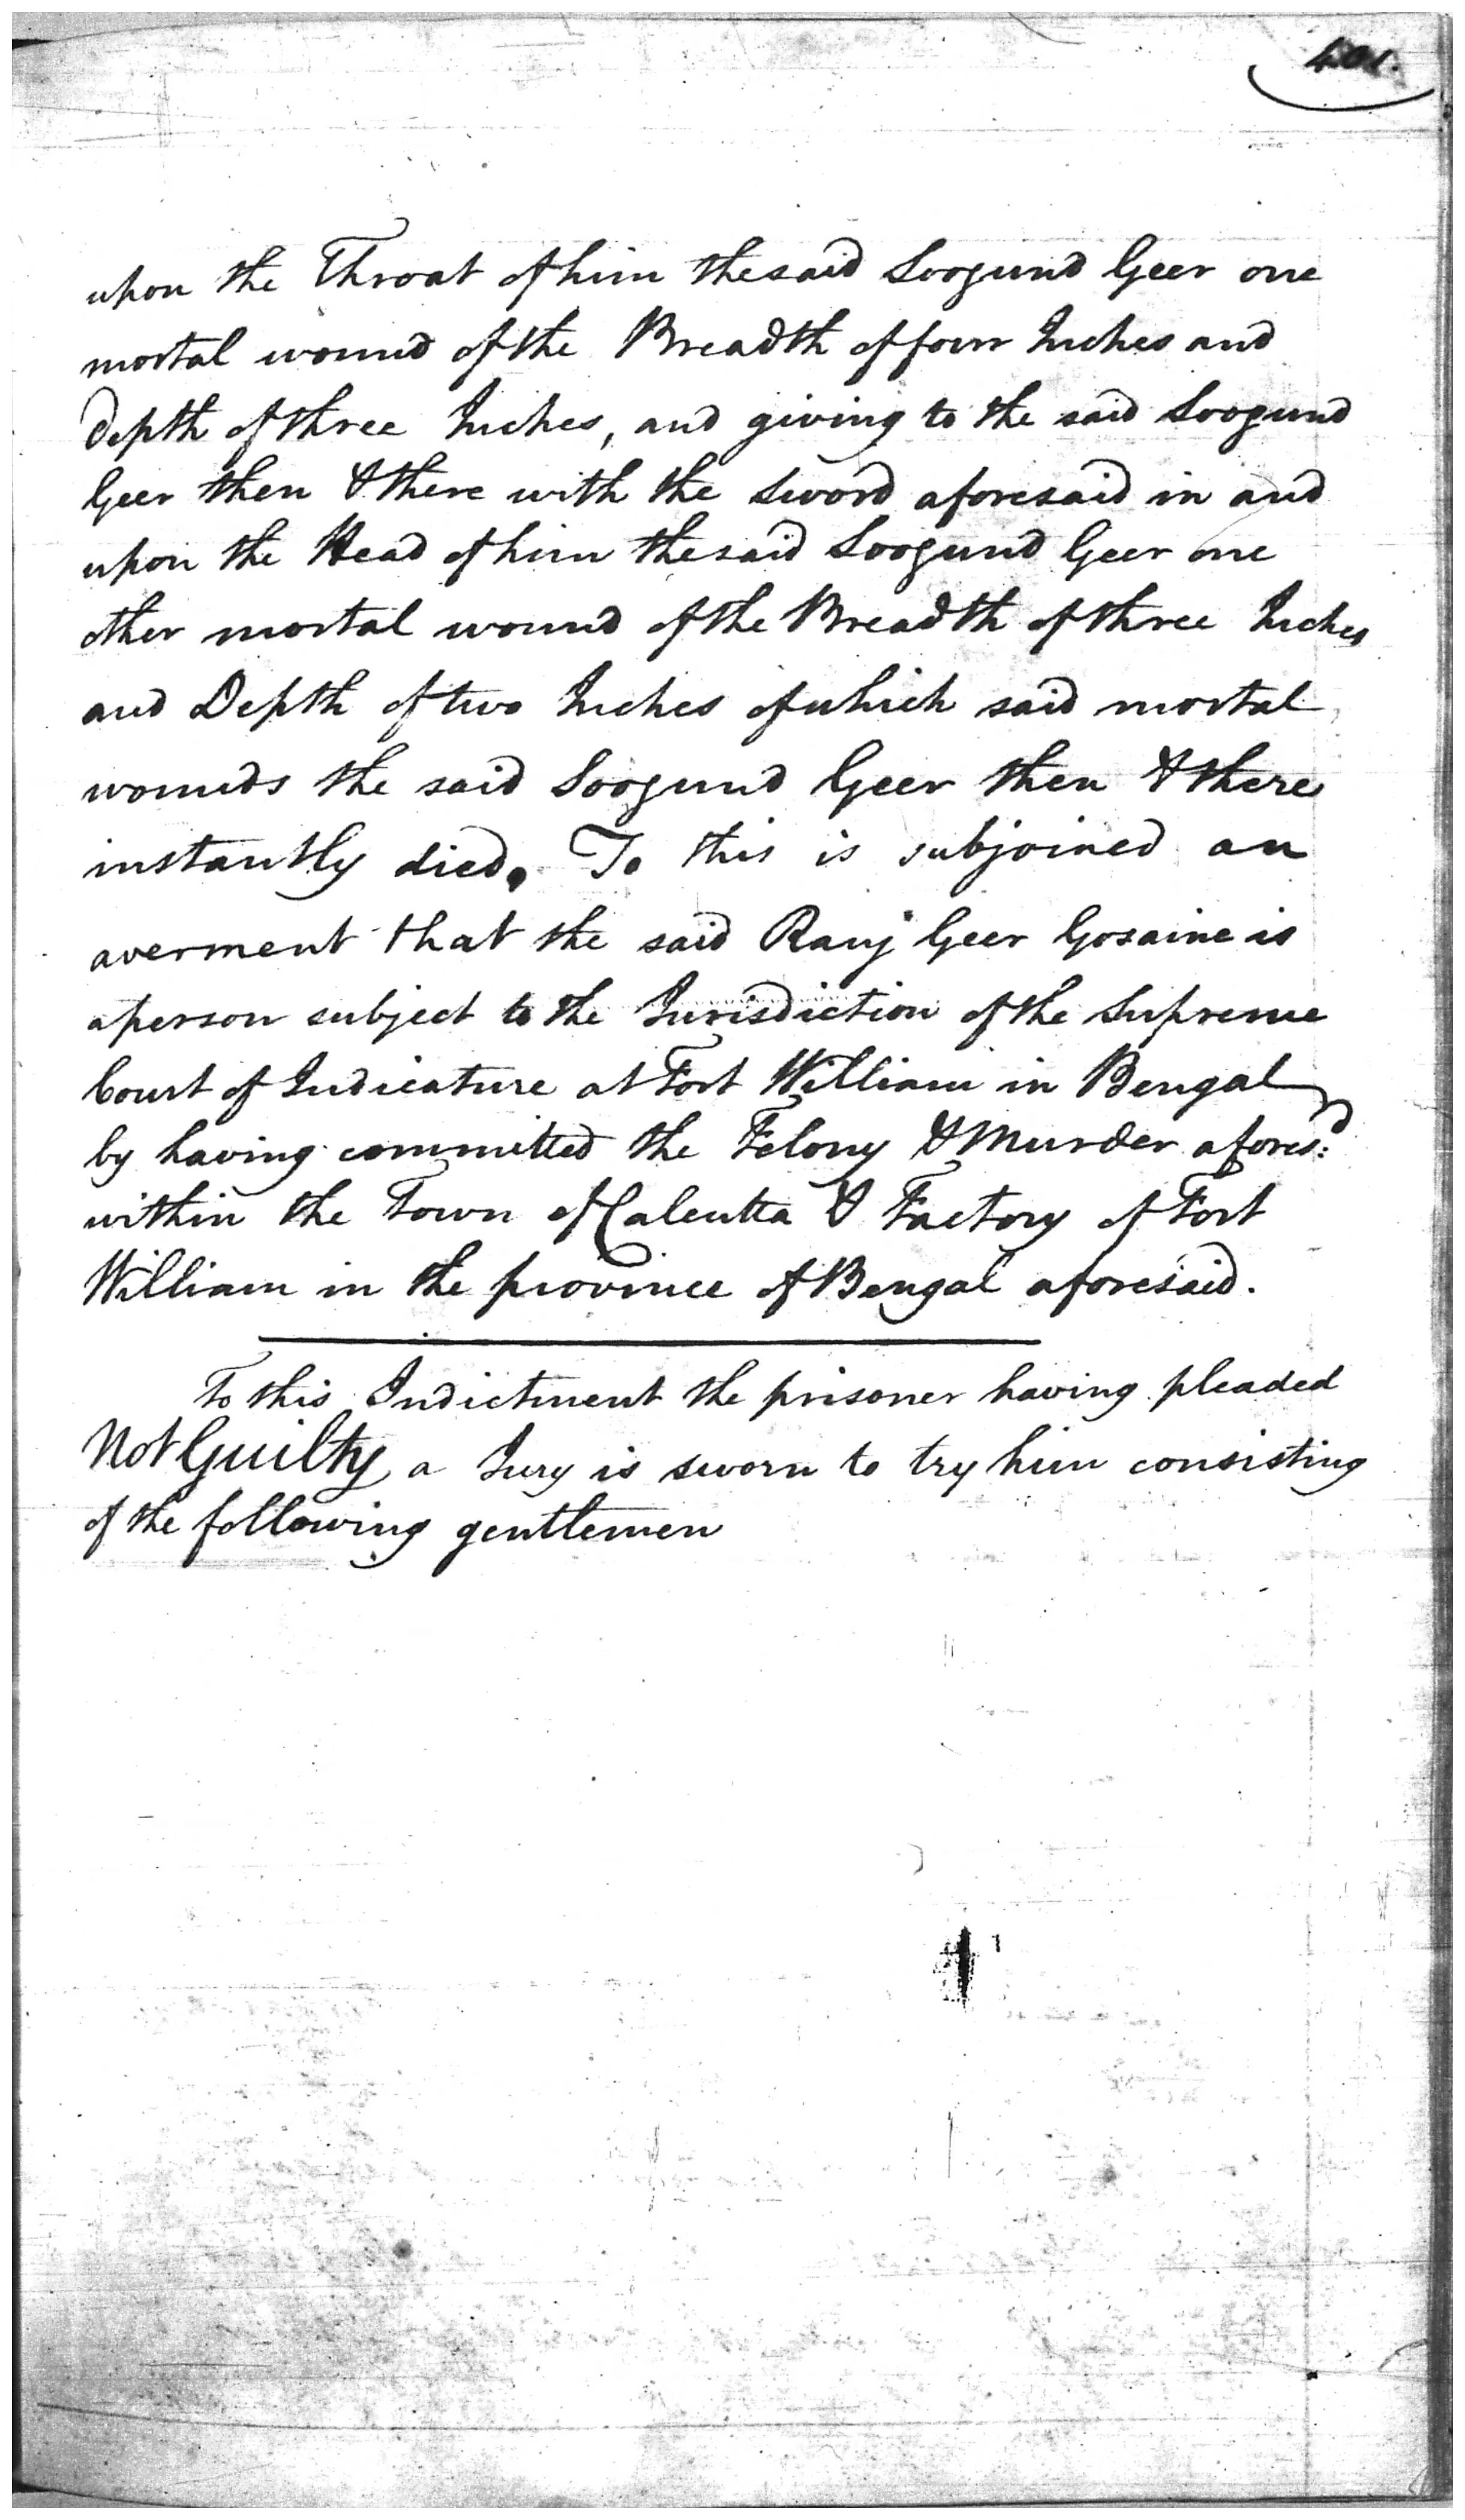 upon the Throat of him the said Soogund Geer one
mortal wound of the Breadth of four Inches and
Depth of three Inches, and giving to the said Soogund
Geer then & there with the Sword aforesaid in and
upon the Head of him the said Soogund Geer one
other mortal wound of the Breadth of three Inches
and Depth of two Inches of which said mortal
wounds the said Soogund Geer then & there
instantly died. To this is subjoined an
averment that the said Rauj Geer Gosaine is
a person subject to the Jurisdiction of the Supreme
Court of Judicature at Fort William in Bengal
by having committed the Felony & Murder afores:d
within the Town of Calcutta & Factory of Fort
William in the province of Bengal aforesaid.
To this Indictment the prisoner having pleaded
Not Guilty a Jury is sworn to try him consisting
of the following gentlemen